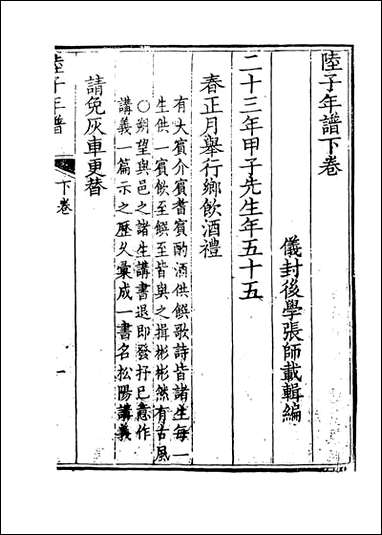 陸子年譜下卷
儀封後學張師載輯編
二十三年甲子先生年五十五
春正月舉行鄉飲酒禮
有大賓介賓耆賓酌酒供饌歌詩皆諸生每一
生供一賓飲至饌至皆與之揖彬彬然有古風
○朔望與邑之諸生講書退即發抒已意作
講義一篇示之歷久彙成一書名松陽講義
請免灰車更替
陸子年譜
下卷
一